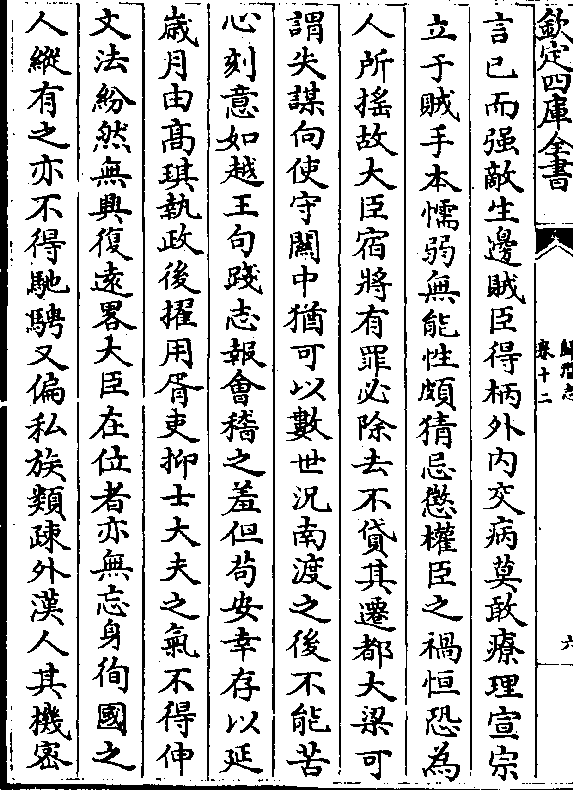 欽定四庫全書
歸潛志
卷十二
六
言已而强敵生邊賊臣得柄外内交病莫敢療理宣宗
立于賊手本懦弱無能性頗猜忌懲權臣之禍恒恐為
人所揺故大臣宿將有罪必除去不貸其遷都大梁可
謂失謀向使守關中猶可以數世況南渡之後不能苦
心刻意如越王句踐志報會稽之羞但苟安幸存以延
歳月由高琪執政後擢用胥吏抑士大夫之氣不得伸
文法紛然無興復遠畧大臣在位者亦無忘身徇國之
人縱有之亦不得馳騁又偏私族類疎外漢人其機密